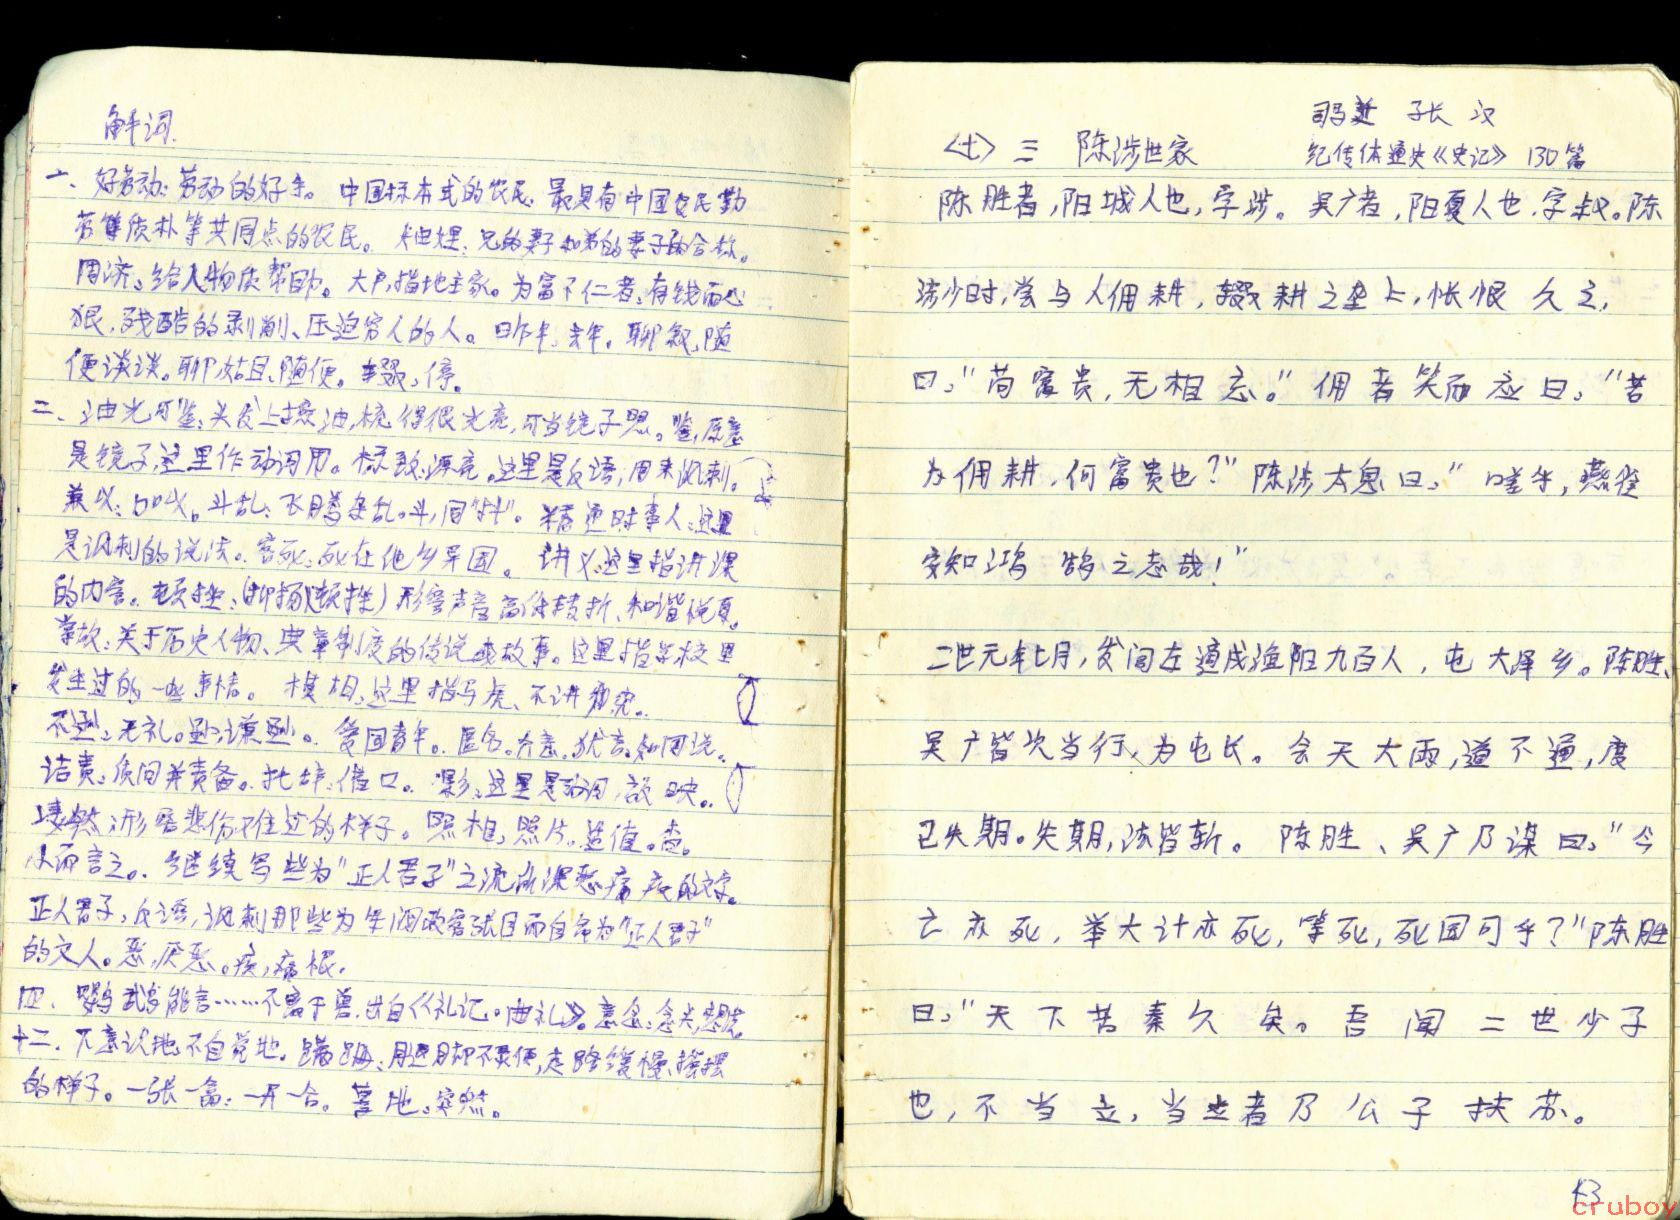 解词.
一、好劳动:劳动的好手。中国标本式的农民:最具有中国农民勤
劳、质朴等共同点的农民。妯娌:兄的妻子和弟的妻子的合称。
周济:给人物质帮助。大户,指地主家。为富不仁者:有钱而心
狠,残酷的剥削、压迫穷人的人。昨年:去年。聊叙:随
便谈谈。聊,姑且、随便。辍:停。
二、油光可鉴:头发上擦油,梳得很光亮,可当镜子照。鉴,原意
是镜子,这里作动词用。标致:漂亮。这里是反语,用来讽刺。
兼以:加以。斗乱:飞腾杂乱。斗,同"抖"。精通时事人:这里
是讽刺的说法。客死:死在他乡异国。讲义:这里指讲课
的内容。顿挫:(抑扬顿挫)形容声音高低转折、和谐悦耳。
掌故:关于历史人物、典章制度的传说或故事。这里指学校里
发生过的一些事情。模胡:这里指马虎、不讲究。
不逊:无礼。逊:谦逊。爱国青年。匿名。介意。犹言:如同说。
诘责:质问并责备。托辞:借口。影:这里是动词,放映。
凄然:形容悲伤的样子。照相:照片。
从而言之。继续写些为"正人君子"之流所深恶痛疾的文字。
正人君子:反语,讽刺那些为军阀政客张目而自命为"正人君子"
的文人。恶,厌恶。疾,痛恨.
四、鹦鹉能言……不离于兽.出自《礼记。曲礼》。意念:念头,想法。
十二.下意识地:不自觉地。蹒跚:腿脚不灵便,走路缓慢、摇摆
的样子。一张一翕:一开一合。蓦地:突然。
司马迁 子长 汉
<七> 三 陈涉世家 纪传体通史《史记》 130篇
陈胜者,阳城人也,字涉。吴广者,阳夏人也,字叔。陈
涉少时,尝与人佣耕,辍耕之垄上,怅恨久之,
曰:"苟富贵,无相忘。"佣者笑而应曰:"若
为佣耕,何富贵也?"陈涉太息曰:"嗟乎,燕雀
安知鸿鹄之志哉!"
二世元年七月,发闾左適戍渔阳九百人,屯大泽乡。陈胜、
吴广皆次当行,为屯长。会天大雨,道不通,度
已失期。失期,法皆斩。陈胜、吴广乃谋曰:"今
亡亦死,举大计亦死,等死,死国可乎?"陈胜
曰:"天下苦秦久矣。吾闻二世少子
也,不当立,当立者乃公子扶苏。
43
cruboy